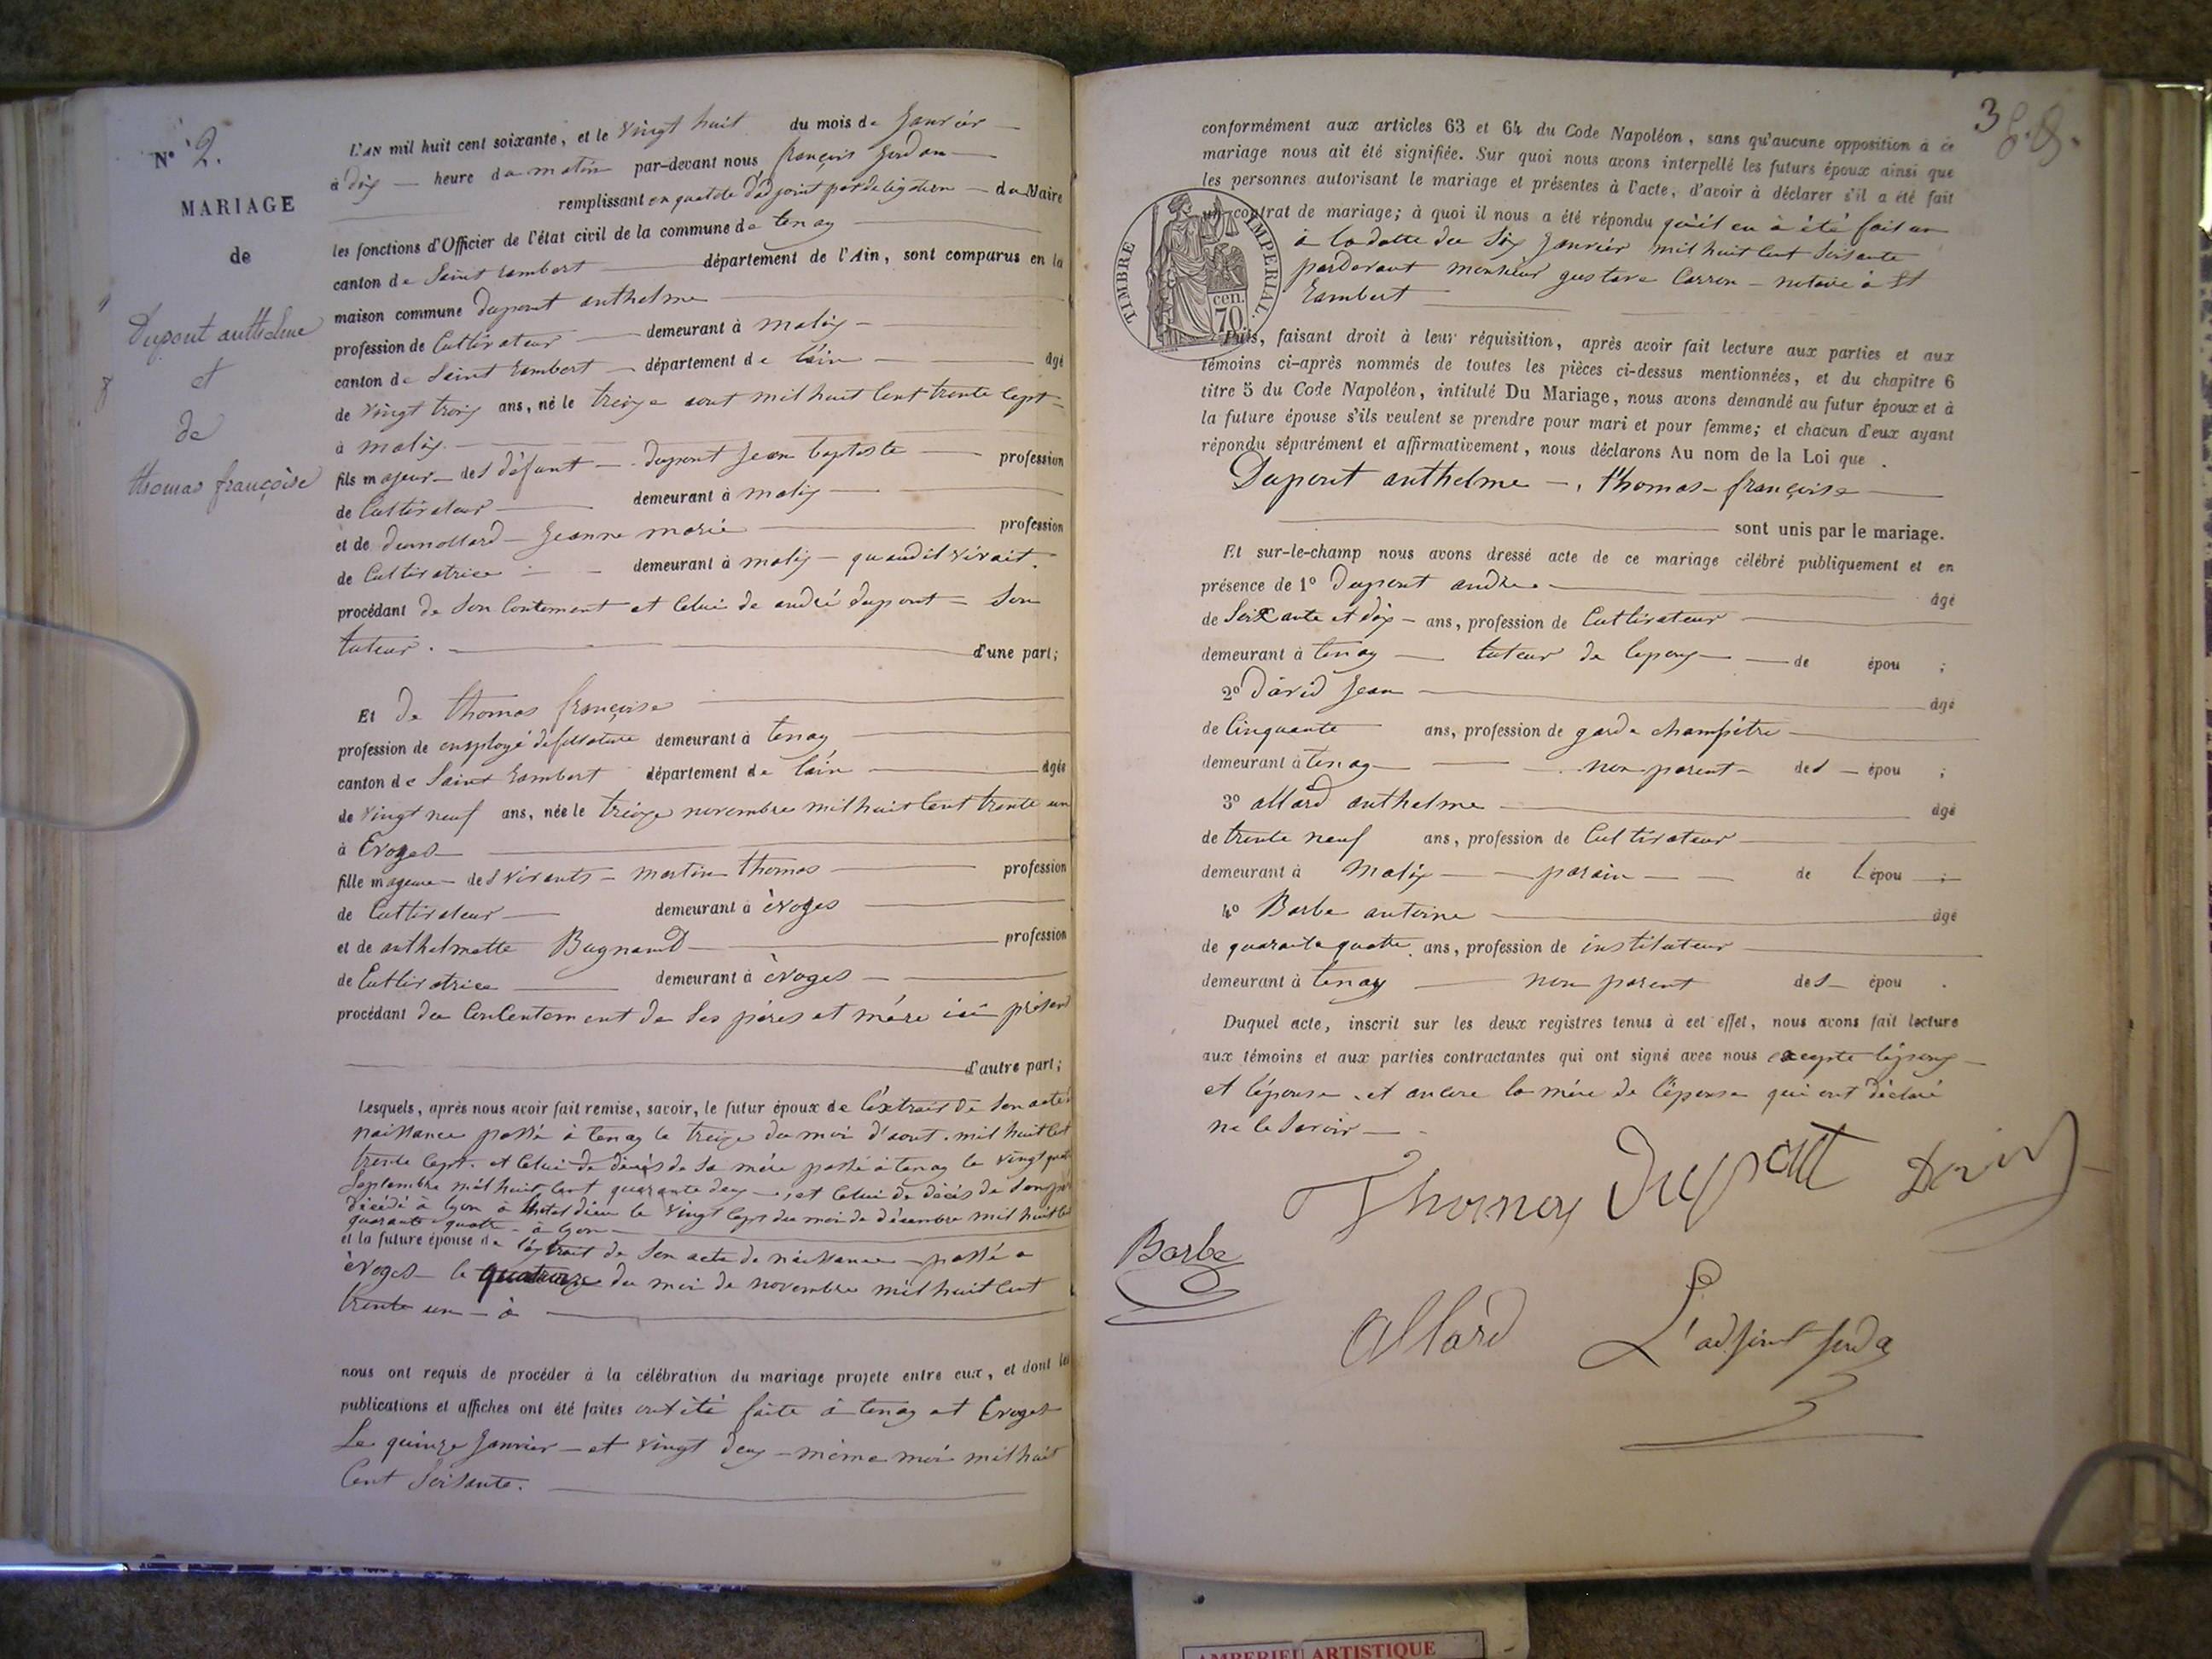 N° 2.
MARIAGE
de
Dupont anthelme
et
de
thomas françoise
L'AN mil huit cent soixante, et le vingt huit du mois de Janvier
à dix heure du matin par-devant nous françois Jordan
remplissant en qualité d'adjoint par deligation du Maire
les fonctions d'Officier de l'état civil de la commune de tenay
canton de Saint rambert département de l'Ain, sont comparus en la
maison commune Dupont anthelme
profession de Cultivateur demeurant à malix
canton de Saint rambert département de l'ain âgé
de vingt troix ans, né le treize aout mil huit Cent trente Sept
à malix
fils majeur des défunt dupont Jean baptiste profession
de Cultivateur demeurant à malix
et de Jeanne marie profession
de Cultivatrice demeurant à malix quand il vivait.
procédant de Son Contement et Celui de andré dupont Son
tuteur. d'une part;
Et de thomas françoise
profession de employé de fillature demeurant à tenay
canton de Saint rambert département de l'ain âgée
de vingt neuf ans, née le treize novembre mil huit Cent trente un
à Evoges
fille mageure des vivants martin thomas profession
de Cultivateur demeurant à èvoges
et de anthelmette Bugnand profession
de Cultivatrice demeurant à èvoges
procédant du Consentement de Ses pères et mère ici présent
d'autre part;
Lesquels, après nous avoir fait remise, savoir, le futur époux de l'extrait de Son acte
naissance passé à tenay le treize du moi d'aout mil huit Cent
trente Sept. et Celui de décès de Sa mère passé à tenay le vingt
Septembre mil huit Cent quarante deux, et Celui de décès de Son
décédé à lyon à hotel dieu le vingt Sept du moi de décembre mil huit
quarante quatre à lyon
et la future épouse de l'extrait de Son acte de naissance passé a
èvoges le quatorze du moi de novembre mil huit Cent
trente un à
nous ont requis de procéder à la célébration du mariage projeté entre eux, et dont les
publications et affiches ont été faites ont été faite à tenay et Evoges
Le quinze Janvier et vingt deux même moi mil huit
Cent Soisante.
3
conformément aux articles 63 et 64 du Code Napoléon, sans qu'aucune opposition à ce
mariage nous ait été signifiée. Sur quoi nous avons interpellé les futurs époux ainsi que
les personnes autorisant le mariage et présentes à l'acte, d'avoir à déclarer s'il a été fait
un contrat de mariage; à quoi il nous a été répondu qu'il en à été fait un
à la datte du Six Janvier mil huit Cent Soisante
pardevant monsieur gustave Carron notaire à St
Rambert
TIMBRE IMPERIAL.
cen.
70
Puis, faisant droit à leur réquisition, après avoir fait lecture aux parties et aux
témoins ci-après nommés de toutes les pièces ci-dessus mentionnées, et du chapitre 6
titre 5 du Code Napoléon, intitulé Du Mariage, nous avons demandé au futur époux et à
la future épouse s'ils veulent se prendre pour mari et pour femme; et chacun d'eux ayant
répondu séparément et affirmativement, nous déclarons Au nom de la Loi que
Dupont anthelme, thomas françoise
sont unis par le mariage.
Et sur-le-champ nous avons dressé acte de ce mariage célébré publiquement et en
présence de 1° Dupont andre âgé
de Soixante et dix ans, profession de Cultivateur
demeurant à tenay tuteur de lepoux de épou ;
2° david Jean âgé
de Cinquante ans, profession de garde champètre
demeurant à tenay non parent des épou ;
3° allard anthelme âgé
de trente neuf ans, profession de Cultivateur
demeurant à malix parain de L épou ;
4° Barbe antoine âgé
de quarante quatre ans, profession de instituteur
demeurant à tenay non parent des épou .
Duquel acte, inscrit sur les deux registres tenus à cet effet, nous avons fait lecture
aux témoins et aux parties contractantes qui ont signé avec nous excepte lépoux
et l'épouse et ancore la mère de l'épouse qui ont déclaré
ne le Savoir
Thomas Dupont David
Barbe
Allard L'adjoint Jorda
AMBERIEU ARTISTIQUE